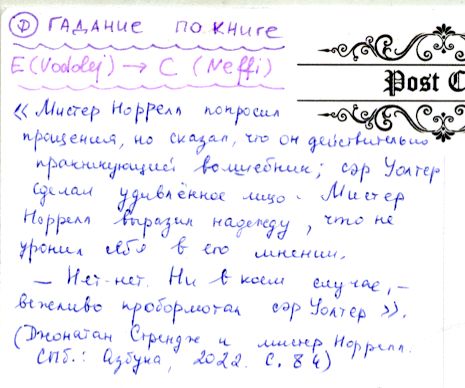 D ГАДАНИЕ ПО КНИГЕ
E (Vodolej) → C (Neffi)
Post C
«Мистер Норрелл попросил
прощения, но сказал, что он действительно
практикующий волшебник; сэр Уолтер
сделал удивлённое лицо. Мистер
Норрелл выразил надежду, что не
уронил себя в его мнении.
— Нет-нет. Ни в коем случае, —
вежливо пробормотал сэр Уолтер».
(Джонатан Стрендж и мистер Норрелл.
СПб.: Азбука, 2022. С. 84)